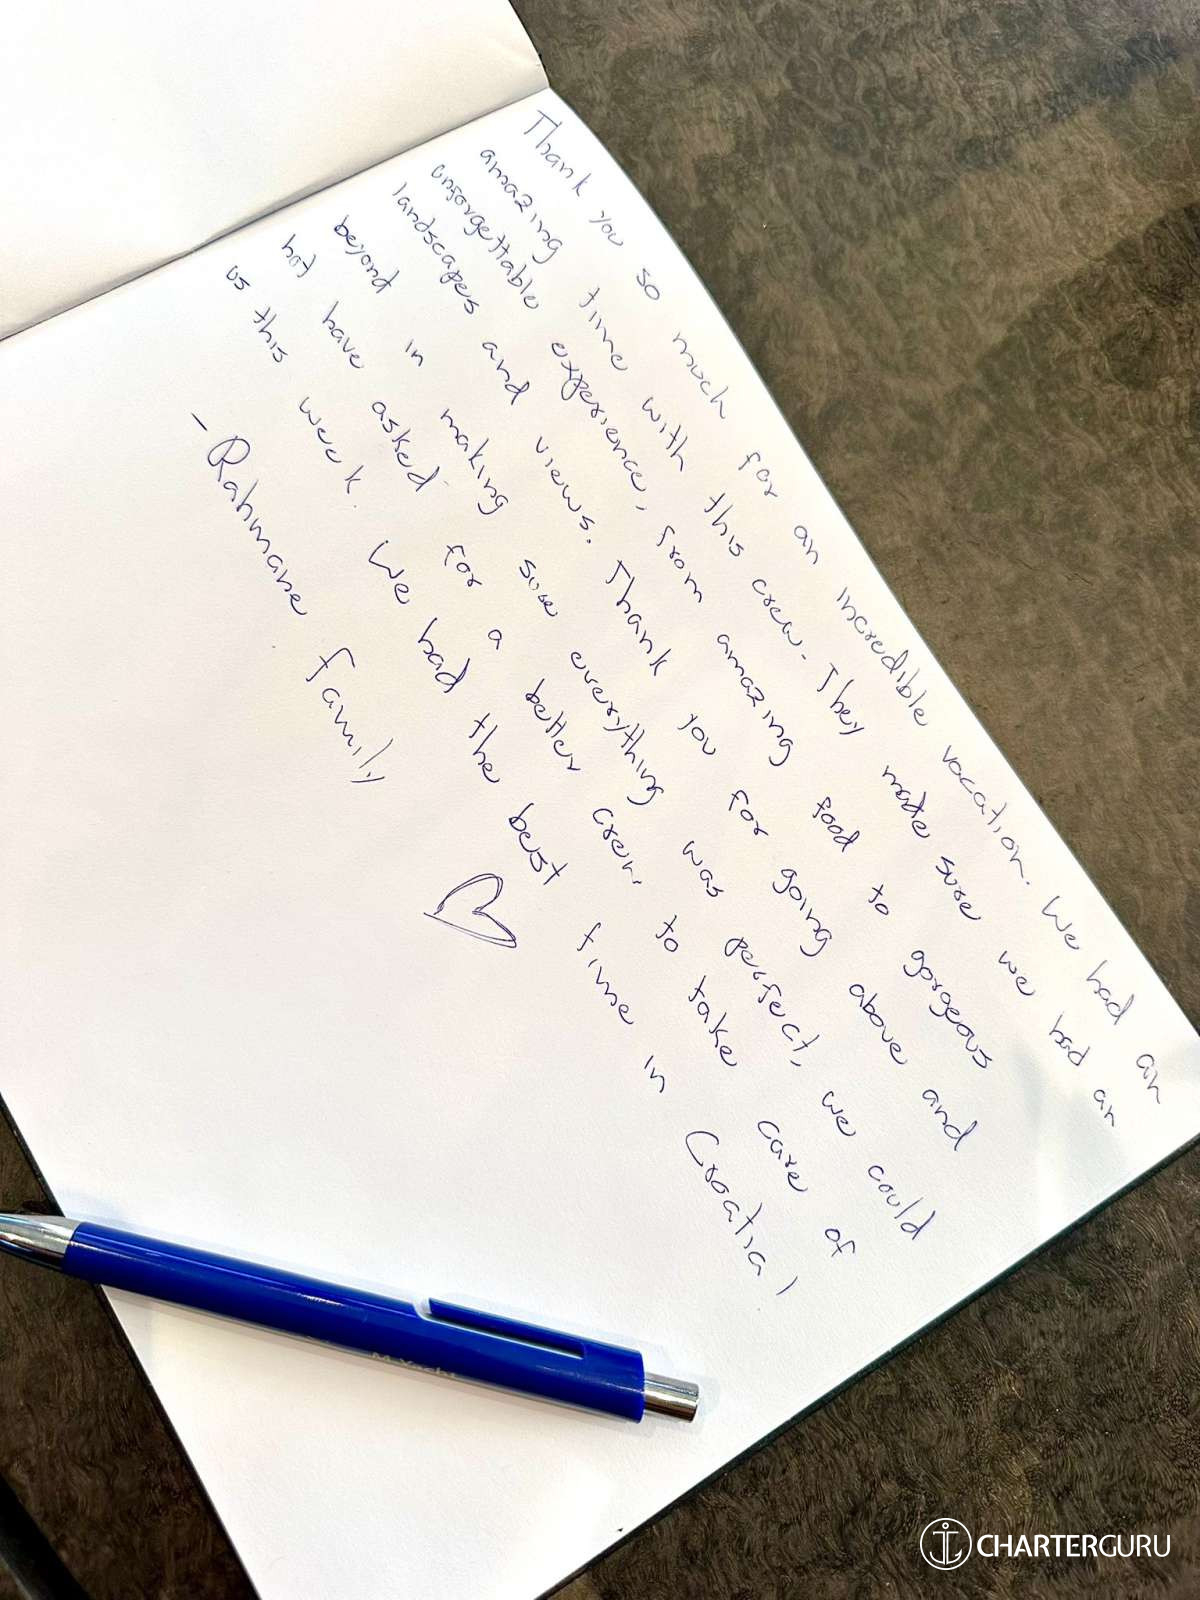 Thank you so much for an incredible vacation. We had an
amazing time with this crew. They made sure we had an
unforgettable experience, from amazing food to gorgeous
landscapes and views. Thank you for going above and
beyond in making sure everything was perfect, we could
not have asked for a better crew to take care of
us this week. We had the best time in Croatia!
- Rahmane Family
CHARTERGURU